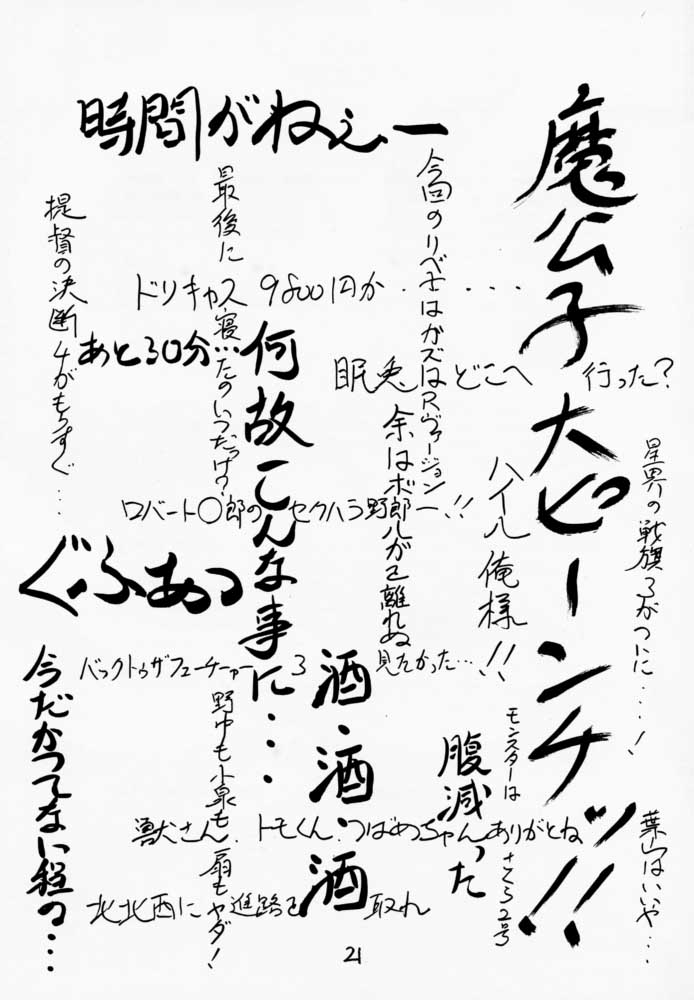 魔公子大ピーンチッ!!
時間がねぇー
今回のリベ士はガズはRヴァージョンー!!
最後に寝いたのいつだっけの?
提督の決断4がもうすぐ…
ドリキャス 9800円か.....
あと30分…
何故こんな事に…
眠兎 どこへ 行った?
余はボ郎ルがる離れぬ
ハイル俺様!!
星界の戦旗3がついに….!
ロバート〇郎の セクハラ野郎
ぐふあっ
バックトゥザフューチャー 3 見たかった…
酒・酒・酒
今だかつてない程の…
野中も小泉も扇もヤダ!
腹減った
モンスターは さくら2号
葉山はいいや…
獣犬さん、トモくん、つばめちゃんありがとね
北北西に 進路を 取れ
21